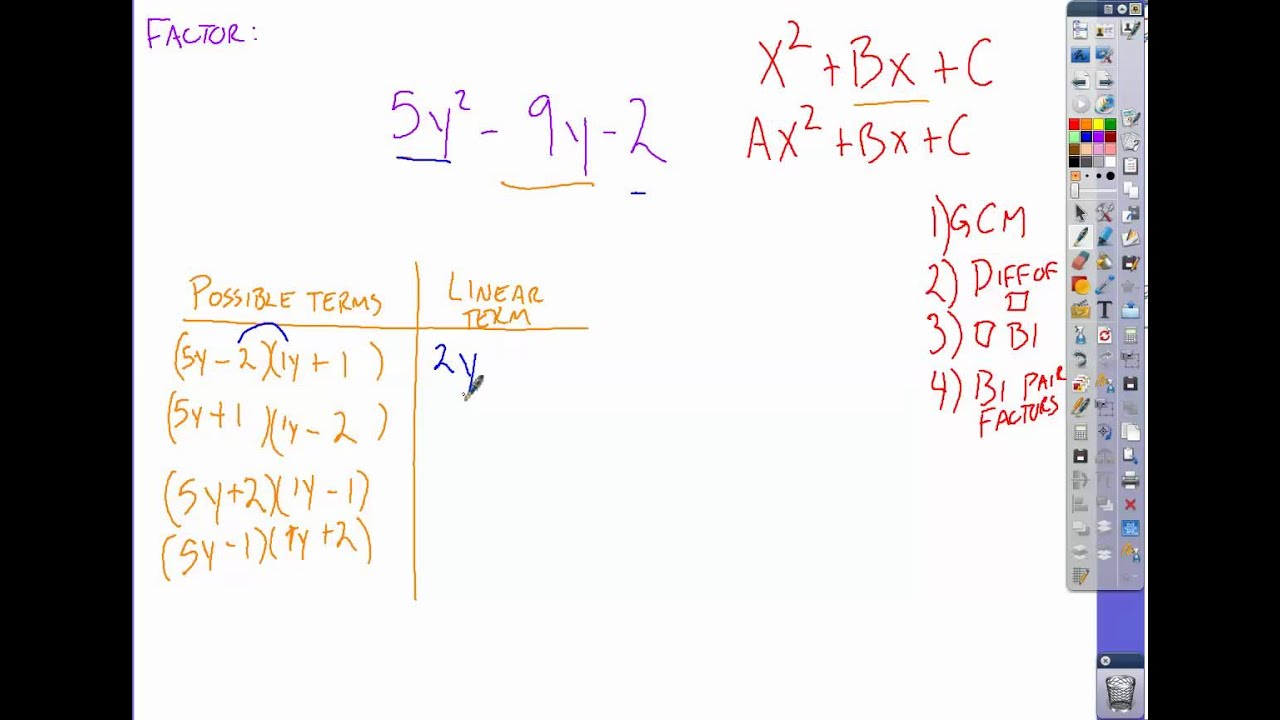 FACTOR:
5y² - 9y - 2
X² + Bx + C
Ax² + Bx + C
1) GCM
2) DIFF OF □
3) □ BI
4) BI PAIR
FACTORS
POSSIBLE TERMS
LINEAR
TERM
(5y - 2)(1y + 1)
2y
(5y + 1)(1y - 2)
(5y + 2)(1y - 1)
(5y - 1)(1y + 2)
T